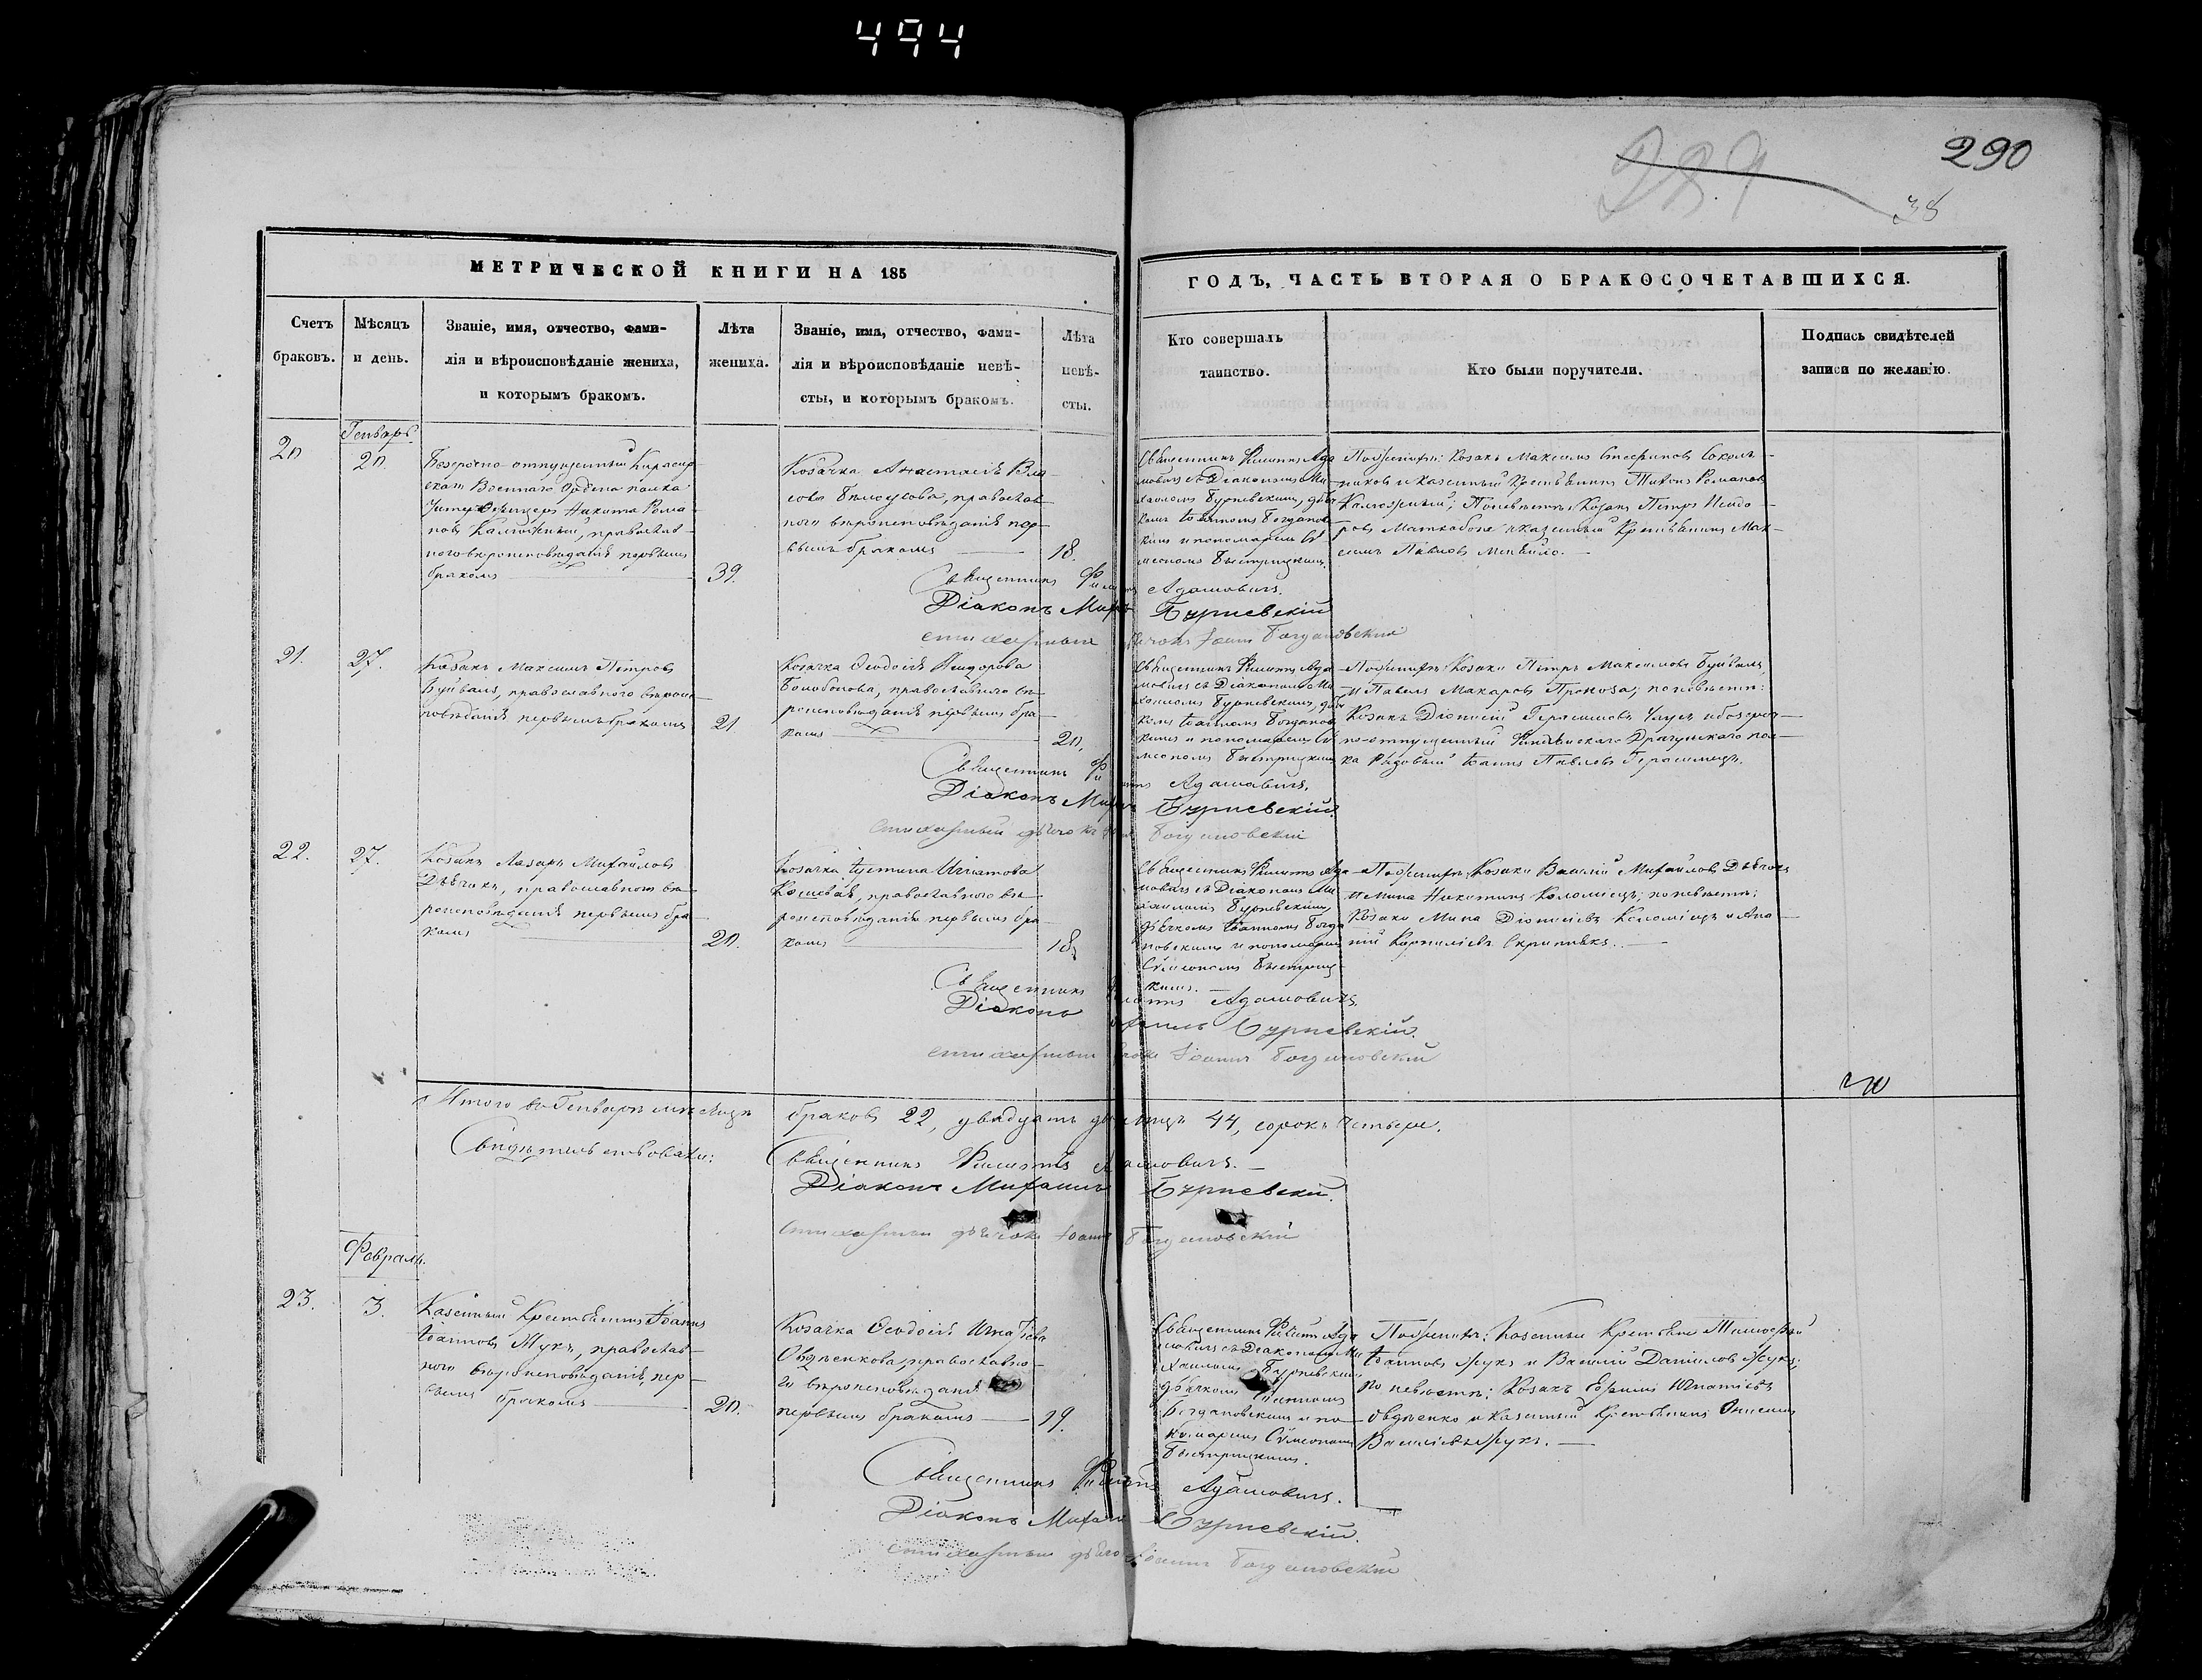 494
290
289
38
МЕТРИЧЕСКОЙ КНИГИ НА 185
ГОДЪ, ЧАСТЬ ВТОРАЯ О БРАКОСОЧЕТАВШИХСЯ.
Счетъ браковъ.
Мѣсяцъ и день.
Званіе, имя, отчество, фами-
лія и вѣроисповѣданіе жениха,
и которымъ бракомъ.
Лѣта жениха.
Званіе, имя, отчество, фами-
лія и вѣроисповѣданіе невѣ-
сты, и которымъ бракомъ.
Лѣта
невѣ-
сты.
Кто совершалъ
таинство.
Кто были поручители.
Подпись свидѣтелей
записи по желанію.
Генварь
20
20.
Безсрочно отпущенный Кирасир-
скаго Военнаго Ордена полка
Унтер Офицеръ Никита Рома-
новъ православ-
наго вѣроисповѣданія первымъ
бракомъ
39.
Козачка Анастасія Вла-
сова Бѣлоусова, православ-
наго вѣроисповѣданія пер-
вымъ бракомъ
18.
Священникъ Филиппъ Ада-
мовичъ съ Діакономъ Ми-
хаиломъ Бурневскимъ, дьяч-
комъ Іоанномъ Богданов-
скимъ и пономаремъ Сѵ-
меономъ Быстрицкимъ.
Козакъ Максимъ Стефановъ
и казенный Крестьянинъ Тихонъ Романовъ
Козакъ Петръ Исидо-
ровъ и казенный Крестьянинъ Мак-
симъ Павловъ
Священникъ Филиппъ Адамовичъ.
Діаконъ Михаилъ Бурневскій
стихарный дьячокъ Іоаннъ Богдановскій
21.
27.
Козакъ Максимъ Петровъ
Буйвалъ, православнаго вѣроис-
повѣданія первымъ бракомъ
21
Козачка Ѳеодосія Исидорова
Болобонова, православнаго вѣ-
роисповѣданія первымъ бра-
комъ
20.
Священникъ Филиппъ Ада-
мовичъ съ Діакономъ Ми-
хаиломъ Бурневскимъ, дьяч-
комъ Іоанномъ Богданов-
скимъ и пономаремъ Сѵ-
меономъ Быстрицкимъ
Козаки Петръ Максимовъ Буйвалъ
и Павелъ Макаровъ по невѣстѣ:
Козакъ Діонисій Герасимовъ и безсроч-
но-отпущенный Драгунскаго пол-
ка Рядовый Іоаннъ Павловъ
Священникъ Филиппъ Адамовичъ.
Діаконъ Михаилъ Бурневскій.
Стихарный дьячокъ Іоаннъ Богдановскій
22.
27.
Козакъ Лазарь Михайловъ
Дьячокъ, православнаго вѣ-
роисповѣданія первымъ бра-
комъ
20.
Козачка Іустина Игнатова
православнаго вѣ-
роисповѣданія первымъ бра-
комъ
18.
Священникъ Филиппъ Ада-
мовичъ съ Діакономъ Ми-
хаиломъ Бурневскимъ,
дьячкомъ Іоанномъ Богда-
новскимъ и пономаремъ
Сѵмеономъ Быстриц-
кимъ.
Козаки Василій Михайловъ Дьячокъ
и Мина Никитинъ Коломіецъ; по невѣстѣ:
Козаки Мина Діонисіевъ Коломіецъ и Ана-
ній Корниліевъ Скрипникъ.
Священникъ Филиппъ Адамовичъ.
Діаконъ Михаилъ Бурневскій.
стихарный дьячокъ Іоаннъ Богдановскій
Итого въ Генварѣ мѣсяцѣ браковъ 22, двадцать два лицъ 44, сорокъ четыре.
Свидѣтельствовали:
Священникъ Филиппъ Адамовичъ.
Діаконъ Михаилъ Бурневскій.
Стихарный дьячокъ Іоаннъ Богдановскій
Февраль.
23.
3.
Казенный Крестьянинъ Іоаннъ
Іоанновъ Жукъ, православ-
наго вѣроисповѣданія, пер-
вымъ бракомъ
20.
Козачка Ѳеодосія Игнатіева
Овдѣенкова, православна-
го вѣроисповѣданія
первымъ бракомъ
19.
Священникъ Филиппъ Ада-
мовичъ съ Діакономъ Ми-
хаиломъ Бурневскимъ
дьячкомъ Іоанномъ
Богдановскимъ и по-
номаремъ Сѵмеономъ
Быстрицкимъ.
Казенный Крестьянинъ Тимоѳей
Іоанновъ Жукъ и Василій Даніиловъ Жукъ;
по невѣстѣ: Козакъ Ефимъ Игнатіевъ
Овдѣенко и казенный Крестьянинъ Онисимъ
Василіевъ Жукъ.
Священникъ Филиппъ Адамовичъ.
Діаконъ Михаилъ Бурневскій.
стихарный дьячокъ Іоаннъ Богдановскій